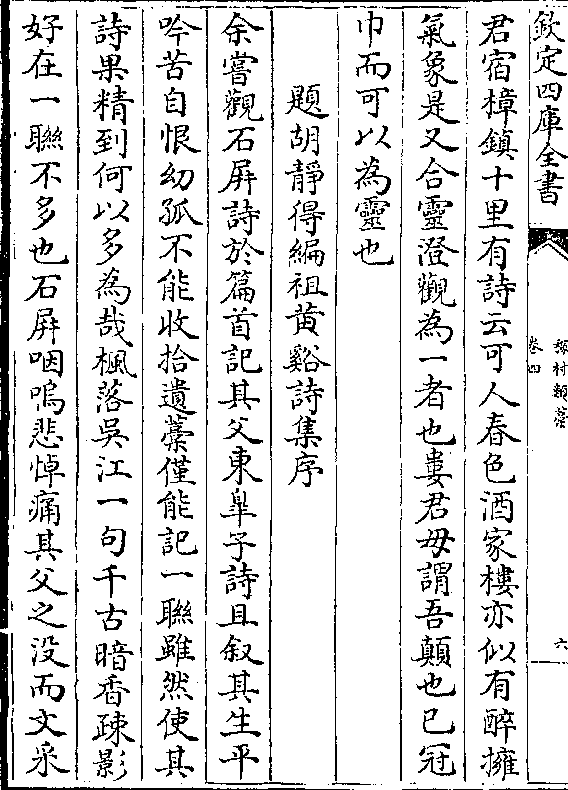 欽定四庫全書
梧村類藁
卷四
六
君宿樟鎮十里有詩云可人春色酒家樓亦似有醉擁
氣象是又合靈澄觀為一者也婁君毋謂吾顛也已冠
巾而可以為靈也
題胡靜得編祖黄谿詩集序
余嘗觀石屏詩於篇首記其父東臯子詩且叙其生平
吟苦自恨幼孤不能收拾遺藁僅能記一聯雖然使其
詩果精到何以多為哉楓落吳江一句千古暗香疎影
好在一聯不多也石屏咽嗚悲悼痛其父之没而文采